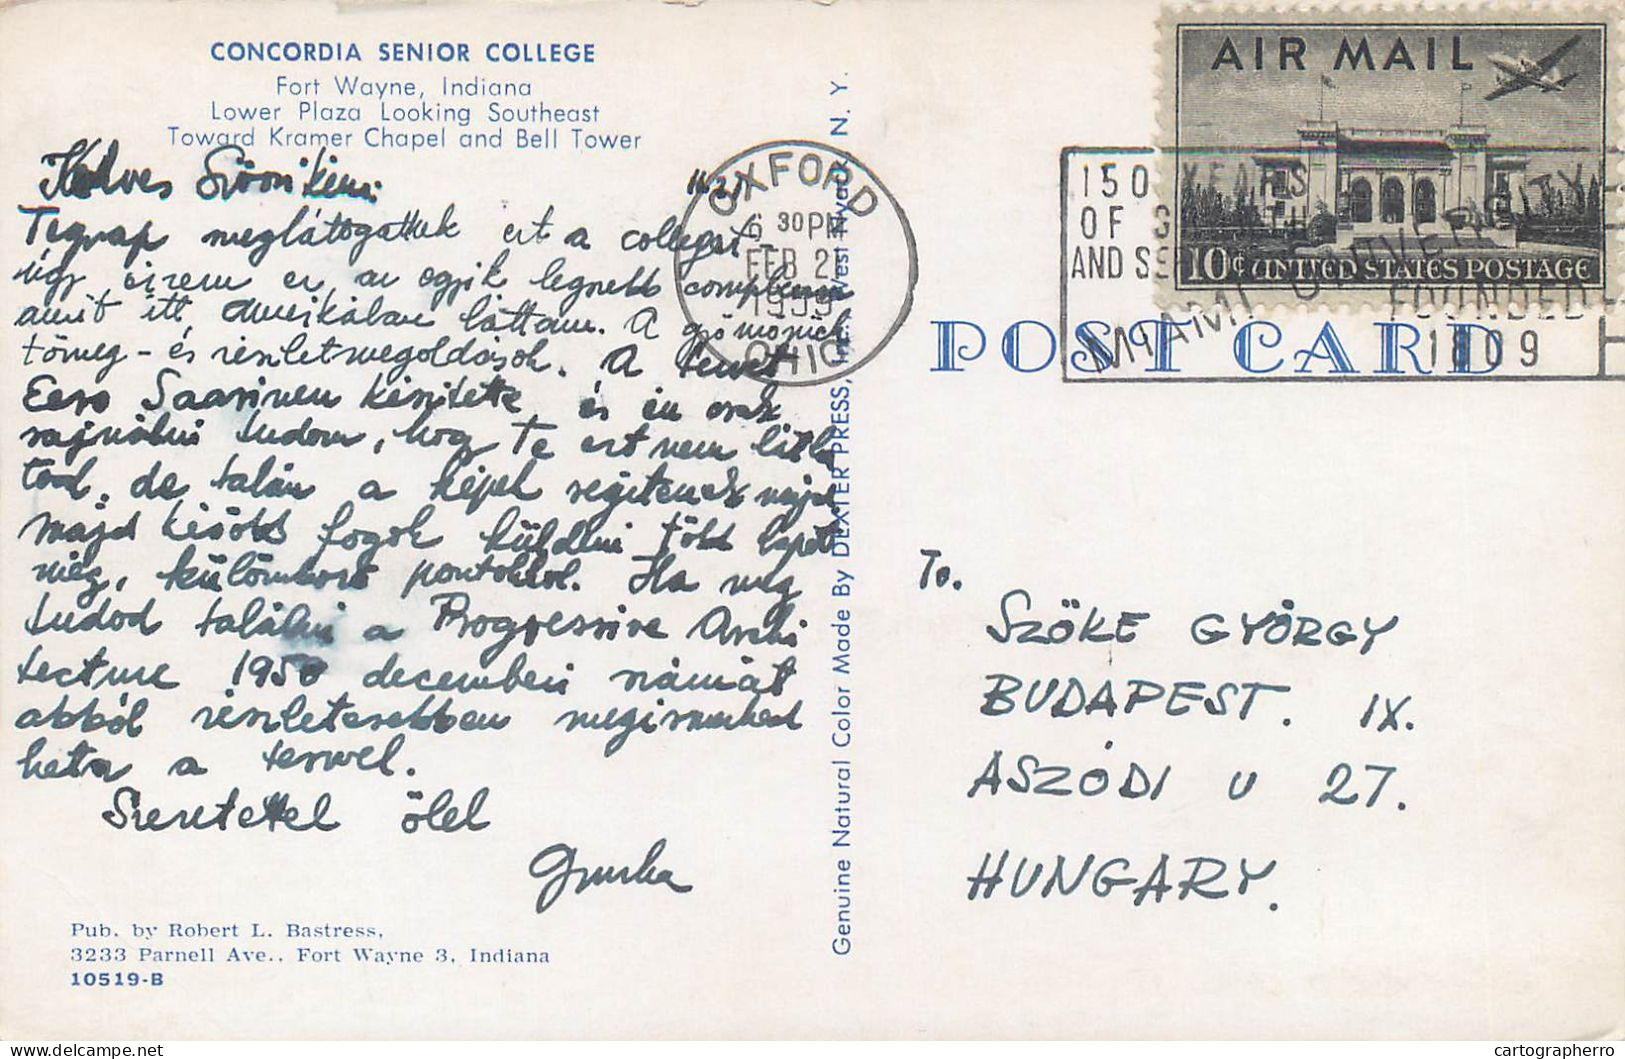 CONCORDIA SENIOR COLLEGE
Fort Wayne, Indiana
Lower Plaza Looking Southeast
Toward Kramer Chapel and Bell Tower
Kedves
Tegnap meglátogattuk ezt a colleget
úgy érzem ez az egyik legszebb
amit itt Amerikában láttam. A gyönyörűek
tömeg - és részletmegoldások. A tervet
Eero Saarinen készítette, és én csak
sajnálni tudom, hogy Te ezt nem láthat
tod, de talán a képek segítenek majd
majd később fogok küldeni több lapot
még, különböző pontokból. Ha meg
tudod találni a Progressive Archi
tecture 1958 decemberi számát
abból részletesebben megismerked
hetsz a tervvel.
Szeretettel ölel
Pub. by Robert L. Bastress,
3233 Parnell Ave., Fort Wayne 3, Indiana
10519-B
Genuine Natural Color Made By DEXTER PRESS, Inc. West Nyack N. Y.
OXFORD
6 30 PM
FEB 2
1959
OHIO
150 YEARS
OF
AND SE
MIAMI UNIVERSITY
FOUNDED
1809
AIR MAIL
10¢ UNITED STATES POSTAGE
POST CARD
To.
SZŐKE GYÖRGY
BUDAPEST. IX.
ASZÓDI U 27.
HUNGARY.
cartographerro